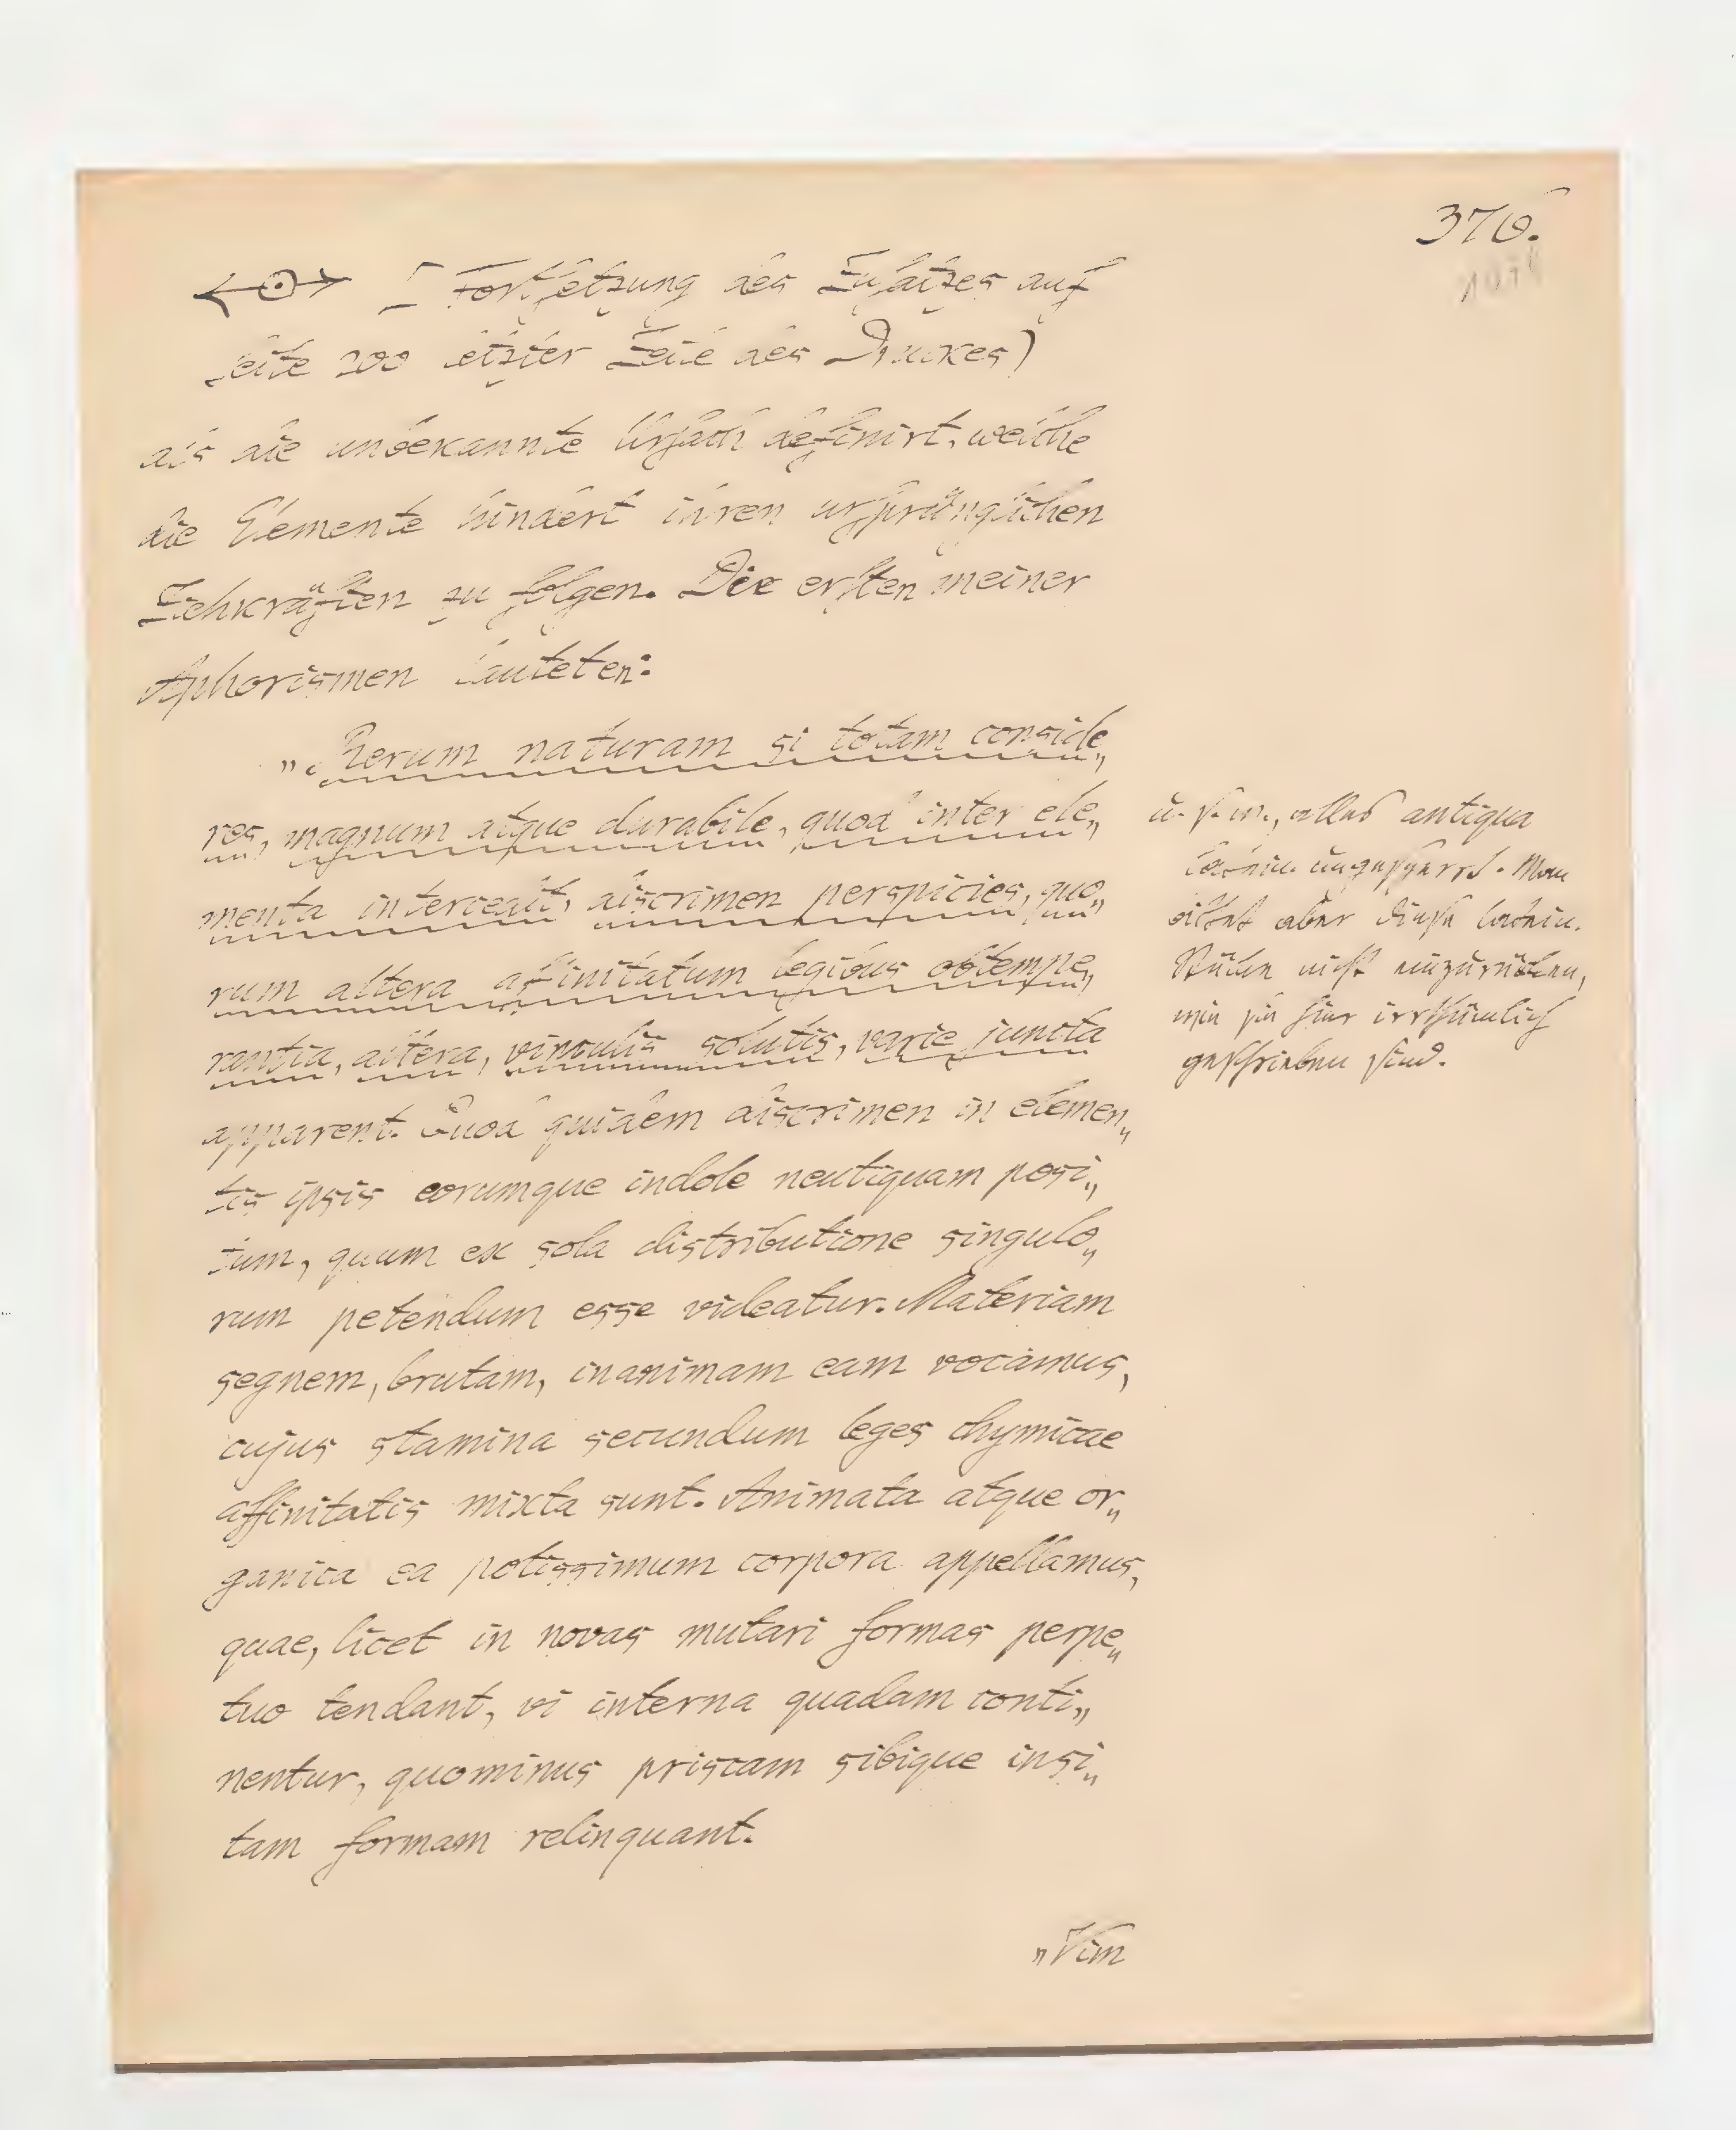 376.
[Fortsetzung des Zusatzes auf
Seite 200 letzter Zeile des Druckes)
als die unbekannte Ursach definirt, welche
die Elemente hindert ihren ursprünglichen
Ziehkräften zu folgen. Die ersten meiner
Aphorismen lauteten:
„Rerum naturam si totam conside„
res, magnum atque durabile, quod inter ele„
menta intercedit, discrimen perspicies, quo„
rum altera affinitatum legibus obtempe„
rantia, altera, vinculis solutis, varie juncta
apparent. Quod quidem discrimen in elemen„
tis ipsis eorumque indole neutiquam posi„
tum, quum ex sola distributione singulo„
rum petendum esse videatur. Materiam
segnem, brutam, inanimam eam vocamus,
cujus stamina secundum leges chymicae
affinitatis mixta sunt. Animata atque or„
ganica ea potissimum corpora appellamus,
quae, licet in novas mutari formas perpe„
tuo tendant, vi interna quadam conti„
nentur, quominus priscam sibique insi„
tam formam relinquant.
„Vim
u. s. w., alles antiqua
latein. ungesperrt. Man
bittet aber diese latein.
Stücke nicht einzurücken,
wie sie hier irrthümlich
geschrieben sind.